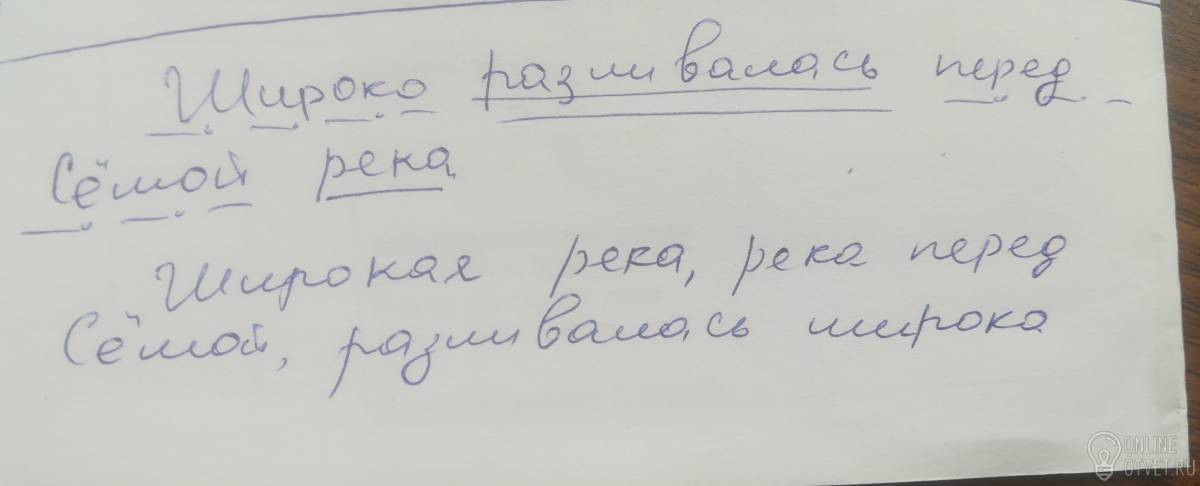 Широко разливалась перед
Сёмой река
Широкая река, река перед
Сёмой, разливалась широко
ONLINE
OTVET.RU